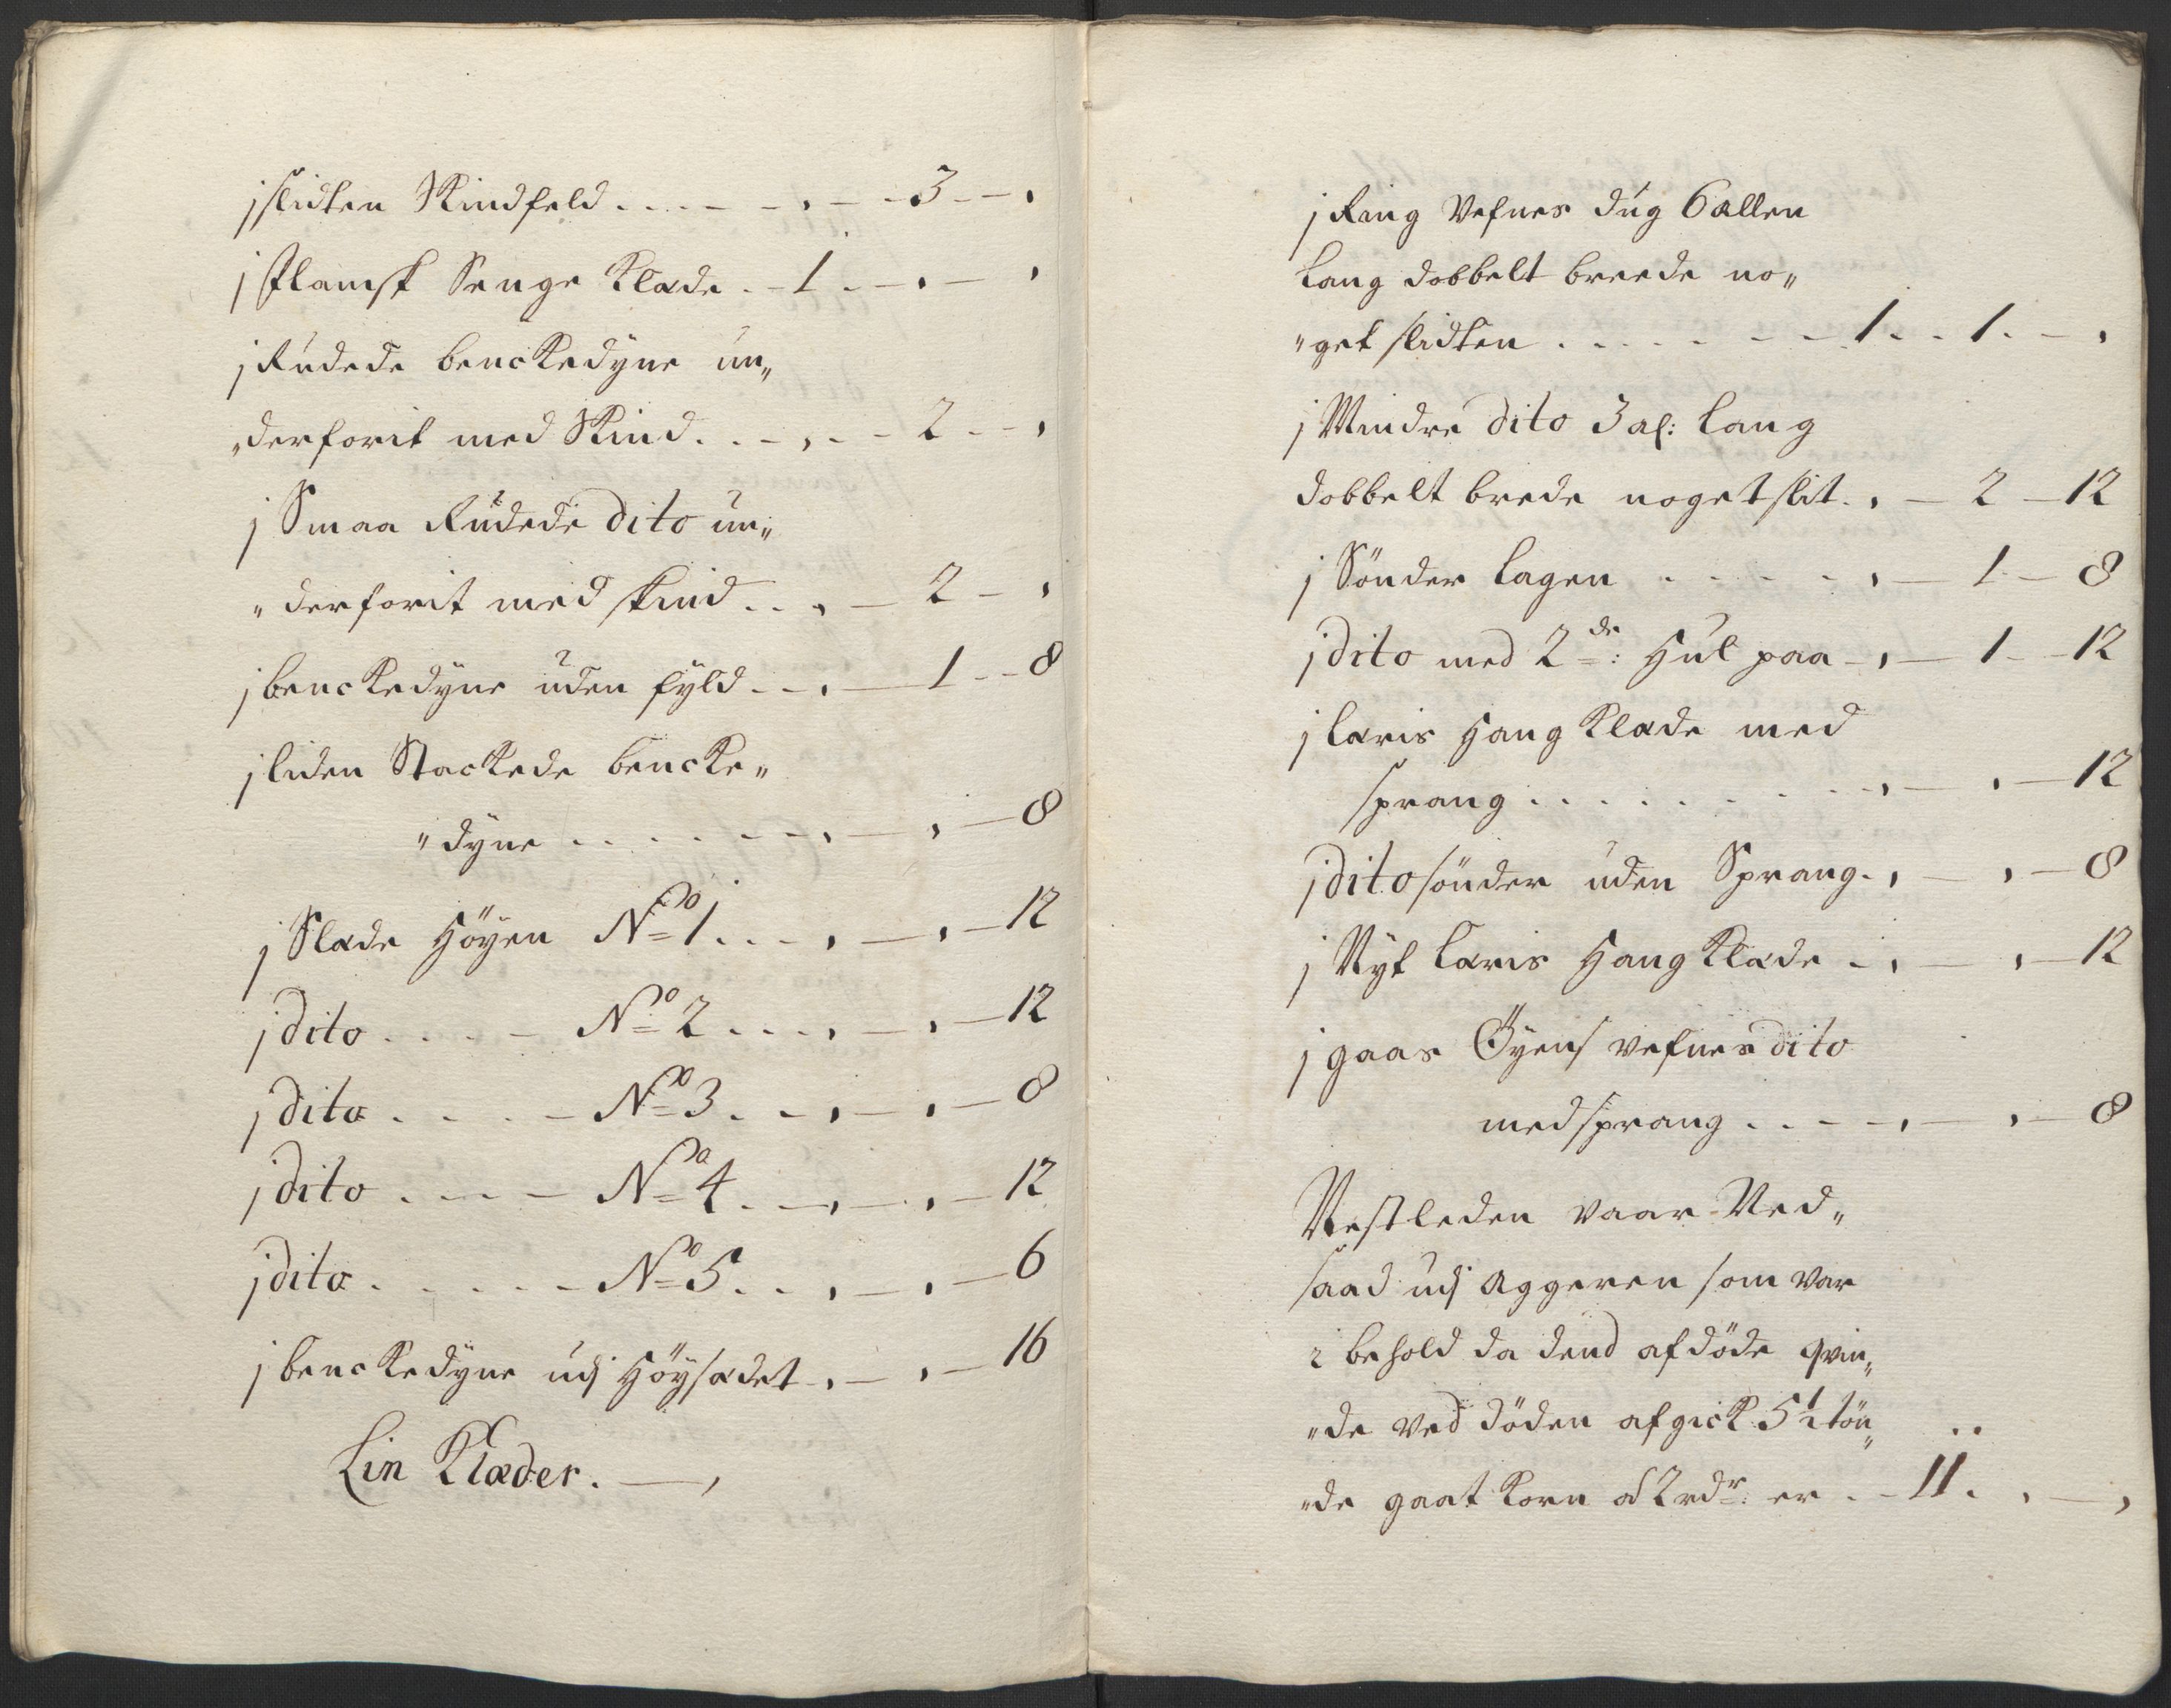 j slidten Skindfeld . . . . - - , - - 3 - - ,
j Flamsk Senge Klæde . - 1 . - , - ,
j Rudede benckedyne un„
„derforit med Skind . . - , . - 2 - - ,
j Smaa Rudede dito un„
„derforit med skind . . , - 2 - ,
j benckedyne uden fyld . - , - 1 - - 8
j liden Stackede bencke„
„dyne . . . . . - - , - , - 8
j Slæde Höyen No 1 . . - , - , - 12
j dito . . . . - No 2 . . . , - , - 12
j dito . . . . - No 3 . - , - , - 8
j dito . . . - No 4 . - , - , - 12
j dito . . . . . - No 5 . . , - , - 6
j benckedyne udj Höysædet - , - , - 16
Lin Klæder . - ,
j Ring Vefues dug 6 allen
lang dobbelt breede no„
„get slidten . . . . . - - 1 - . 1 . - ,
j Mindre dito 3 al: lang
dobbelt brede noget slit . , - 2 - 12
j Sönder lagen . . . . - , - 1 - 8
j dito med 2de: Hul paa - , - 1 - - 12
j læris Hang Klæde med
sprang . . . . . . . . - , - , - 12
j dito sönder uden Sprang . , - , - 8
j Nyt læris Hang Klæde - , - , - 12
j gaas Öyens vefues dito
med sprang . . . - - , - , - 8
Nestleden vaar Ned„
saad udj Aggeren som var
i behold da dend afdöde qvin„
„de ved döden afgick 5½ tön„
„de gaat Korn à 2 rdr: er . - 11 . , - ,